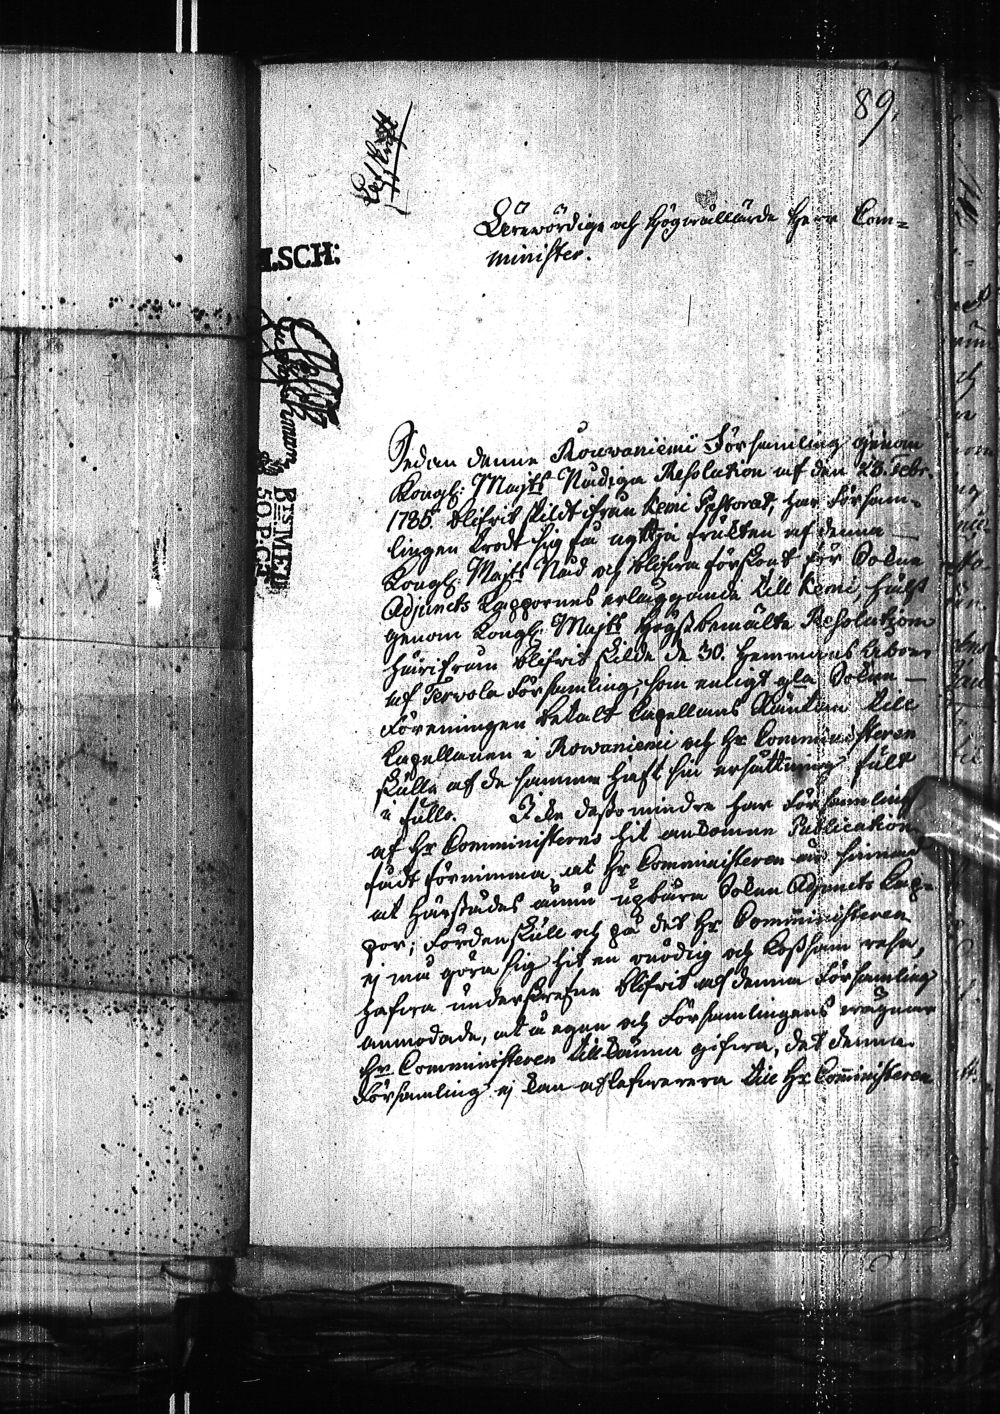 89.
Ärewördige och Högwällärde Herr Com=
minister.
Sedan denne Rowaniemi Församling genom
Kongl: Majts Nådiga Resolution af den 23. Febr.
1785. blifvit skildt ifrån Kemi Pastorat, har Försam-
lingen trodt sig få nyttja frukten af denna
Kongl: Majts Nåd och blifva förskont för Sokne
Adjuncts Kappornes erläggande till Kemi, hälst
genom Kongl: Majts Högstbemälte Resolution
härifrån blifvit skilde de 30. Hemmans Åboer
af Tervola Församling, som enligt gla Sokne
Föreningen betalt Capellans Räntan till
Capellanen i Rowaniemi och Hr Comministeren
skulle af de samma haft sin ersättning fullt
i fullo. Icke desto mindre har Församling
af Hr Comministerns hit ankomne Publication
fådt förnimma, at Hr Comministeren är sinnad
at härstädes ännu upbära Sokne Adjuncts Kap-
por; Fördenskull och på det Hr Comministeren
ej må göra sig hit en onödig och kostsam resa,
hafva underskrefne blifvit af denna Församling
anmodade, at å egne och Församlingens wägnar
Hr Comministeren tillkänna gifva, det denna
Församling ej kan aflefverera till Hr Comministeren
LSCH:
BTS MET
50 P: CT